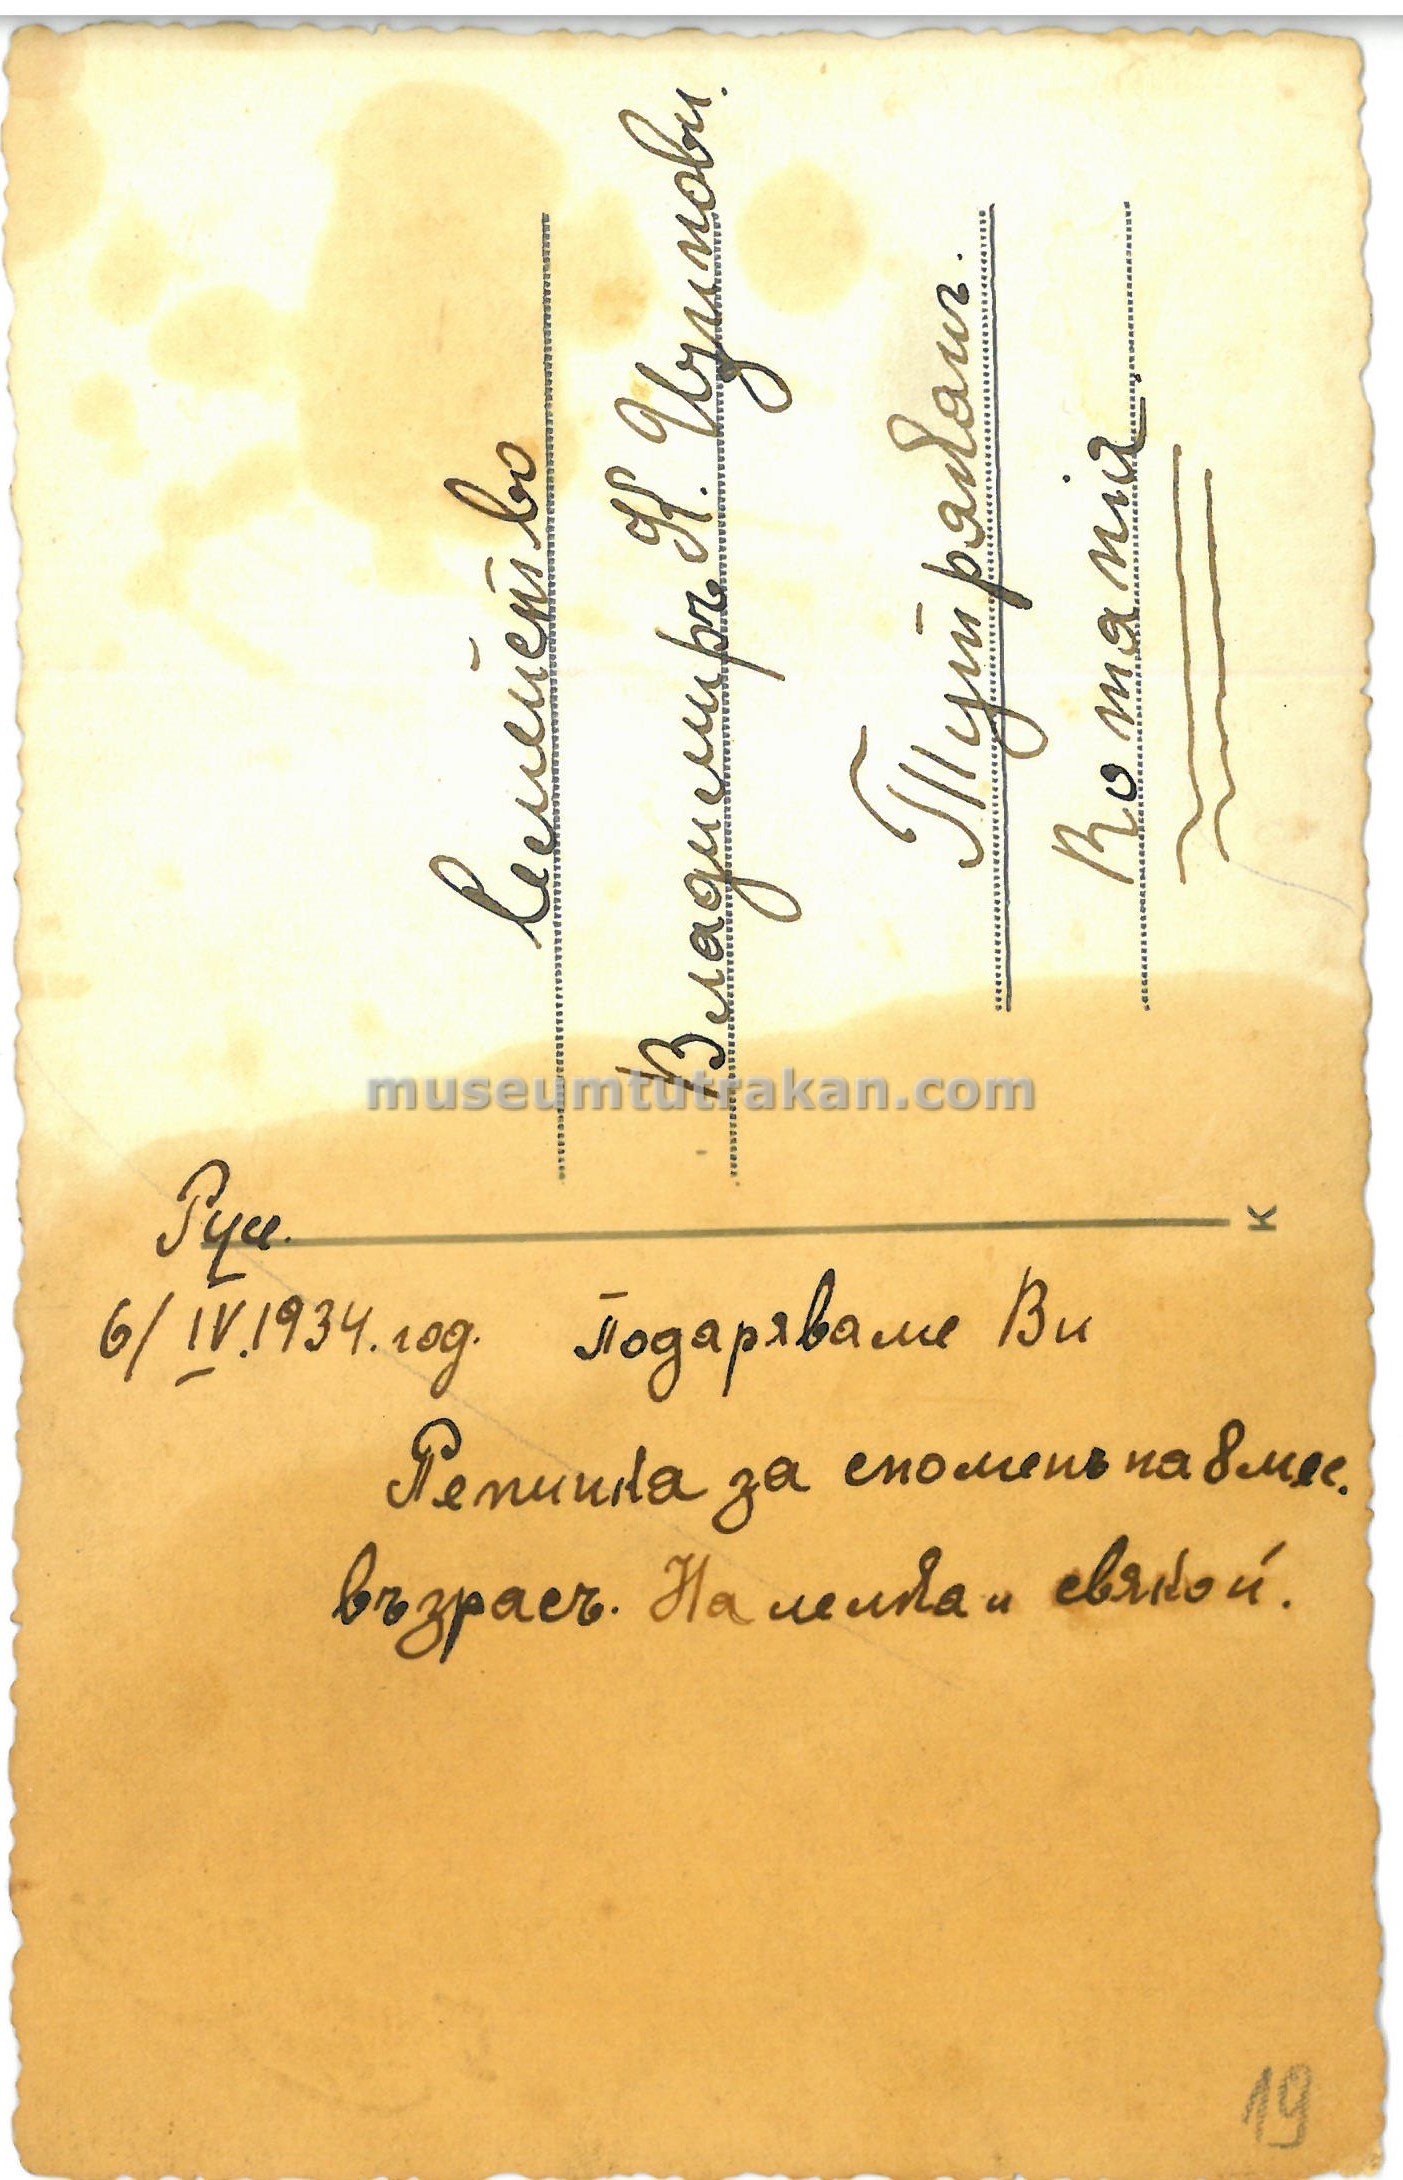 Семейство
Владимиръ К. Чузунови.
Тутраканъ.
Romania.
museumtutrakan.com
K
Рус.
6/IV.1934.год. Подаряваме Ви
Пепинка за споменъ на 8 мес.
възрасъ. На лелка и свякой.
19